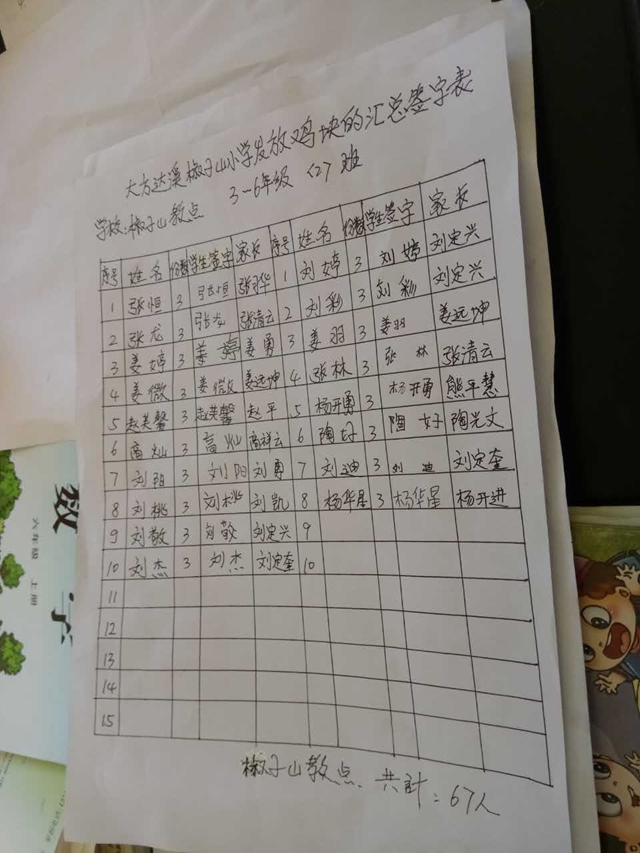 大方达溪椒子山小学发放鸡块的汇总签字表
学校:椒子山教点 3-6年级 <2> 班
序号 姓名 份数 学生签字 家长 序号 姓名 份数 学生签字 家长
1 张恒 3 张恒 张骅 1 刘婷 3 刘婷 刘定兴
2 张龙 3 张龙 张清云 2 刘彩 3 刘彩 刘定兴
3 姜婷 3 姜婷 姜勇 3 姜羽 3 姜羽 姜远坤
4 姜微 3 姜微 姜远坤 4 张林 3 张林 张清云
5 赵英馨 3 赵英馨 赵平 5 杨开勇 3 杨开勇 熊平慧
6 高灿 3 高灿 高祥云 6 陶好 3 陶好 陶光文
7 刘阳 3 刘阳 刘勇 7 刘迪 3 刘迪 刘定奎
8 刘桃 3 刘桃 刘凯 8 杨华星 3 杨华星 杨开进
9 刘敏 3 刘敏 刘定兴 9
10 刘杰 3 刘杰 刘定奎 10
11
12
13
14
15
椒子山教点. 共计:67人
数学
六年级 上册